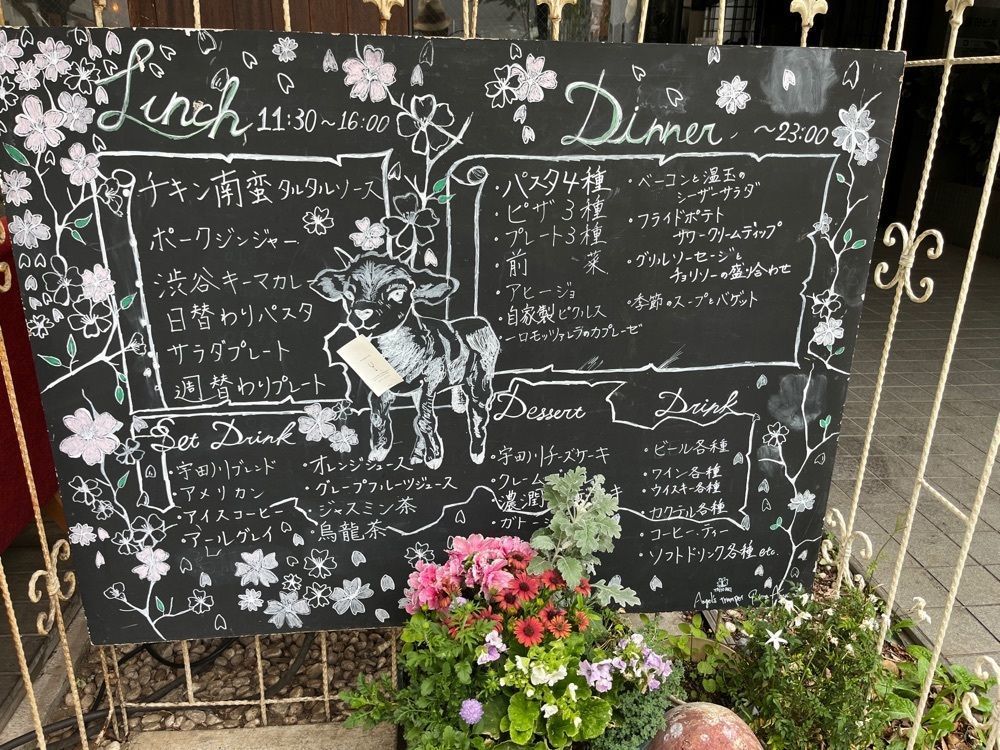 Lunch 11:30～16:00
チキン南蛮 タルタルソース
ポークジンジャー
渋谷キーマカレー
日替わりパスタ
サラダプレート
週替わりプレート
Dinner ～23:00
・パスタ4種
・ピザ3種
・プレート3種
・前菜
・アヒージョ
・自家製ピクルス
・一口モッツァレラのカプレーゼ
・ベーコンと温玉の
シーザーサラダ
・フライドポテト
サワークリームディップ
・グリルソーセージと
チョリソーの盛り合わせ
・季節のスープとバゲット
Set Drink
・宇田川ブレンド
・アメリカン
・アイスコーヒー
・アールグレイ
・オレンジジュース
・グレープフルーツジュース
・ジャスミン茶
・烏龍茶
Dessert
・宇田川チーズケーキ
・クレーム
濃潤
ガトー
Drink
・ビール各種
・ワイン各種
・ウイスキー各種
・カクテル各種
・コーヒー・ティー
・ソフトドリンク各種 etc.